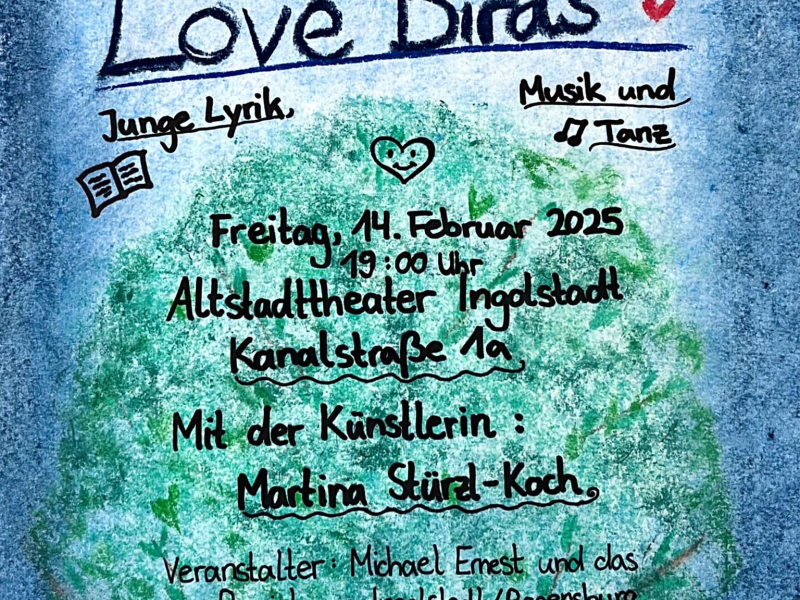 Love Birds
Junge Lyrik,
Musik und
Tanz
Freitag, 14. Februar 2025
19:00 Uhr
Altstadttheater Ingolstadt
Kanalstraße 1a,
Mit der Künstlerin :
Martina Stürzl-Koch,
Veranstalter: Michael Ernest und das
Ingolstadt/Regensburg